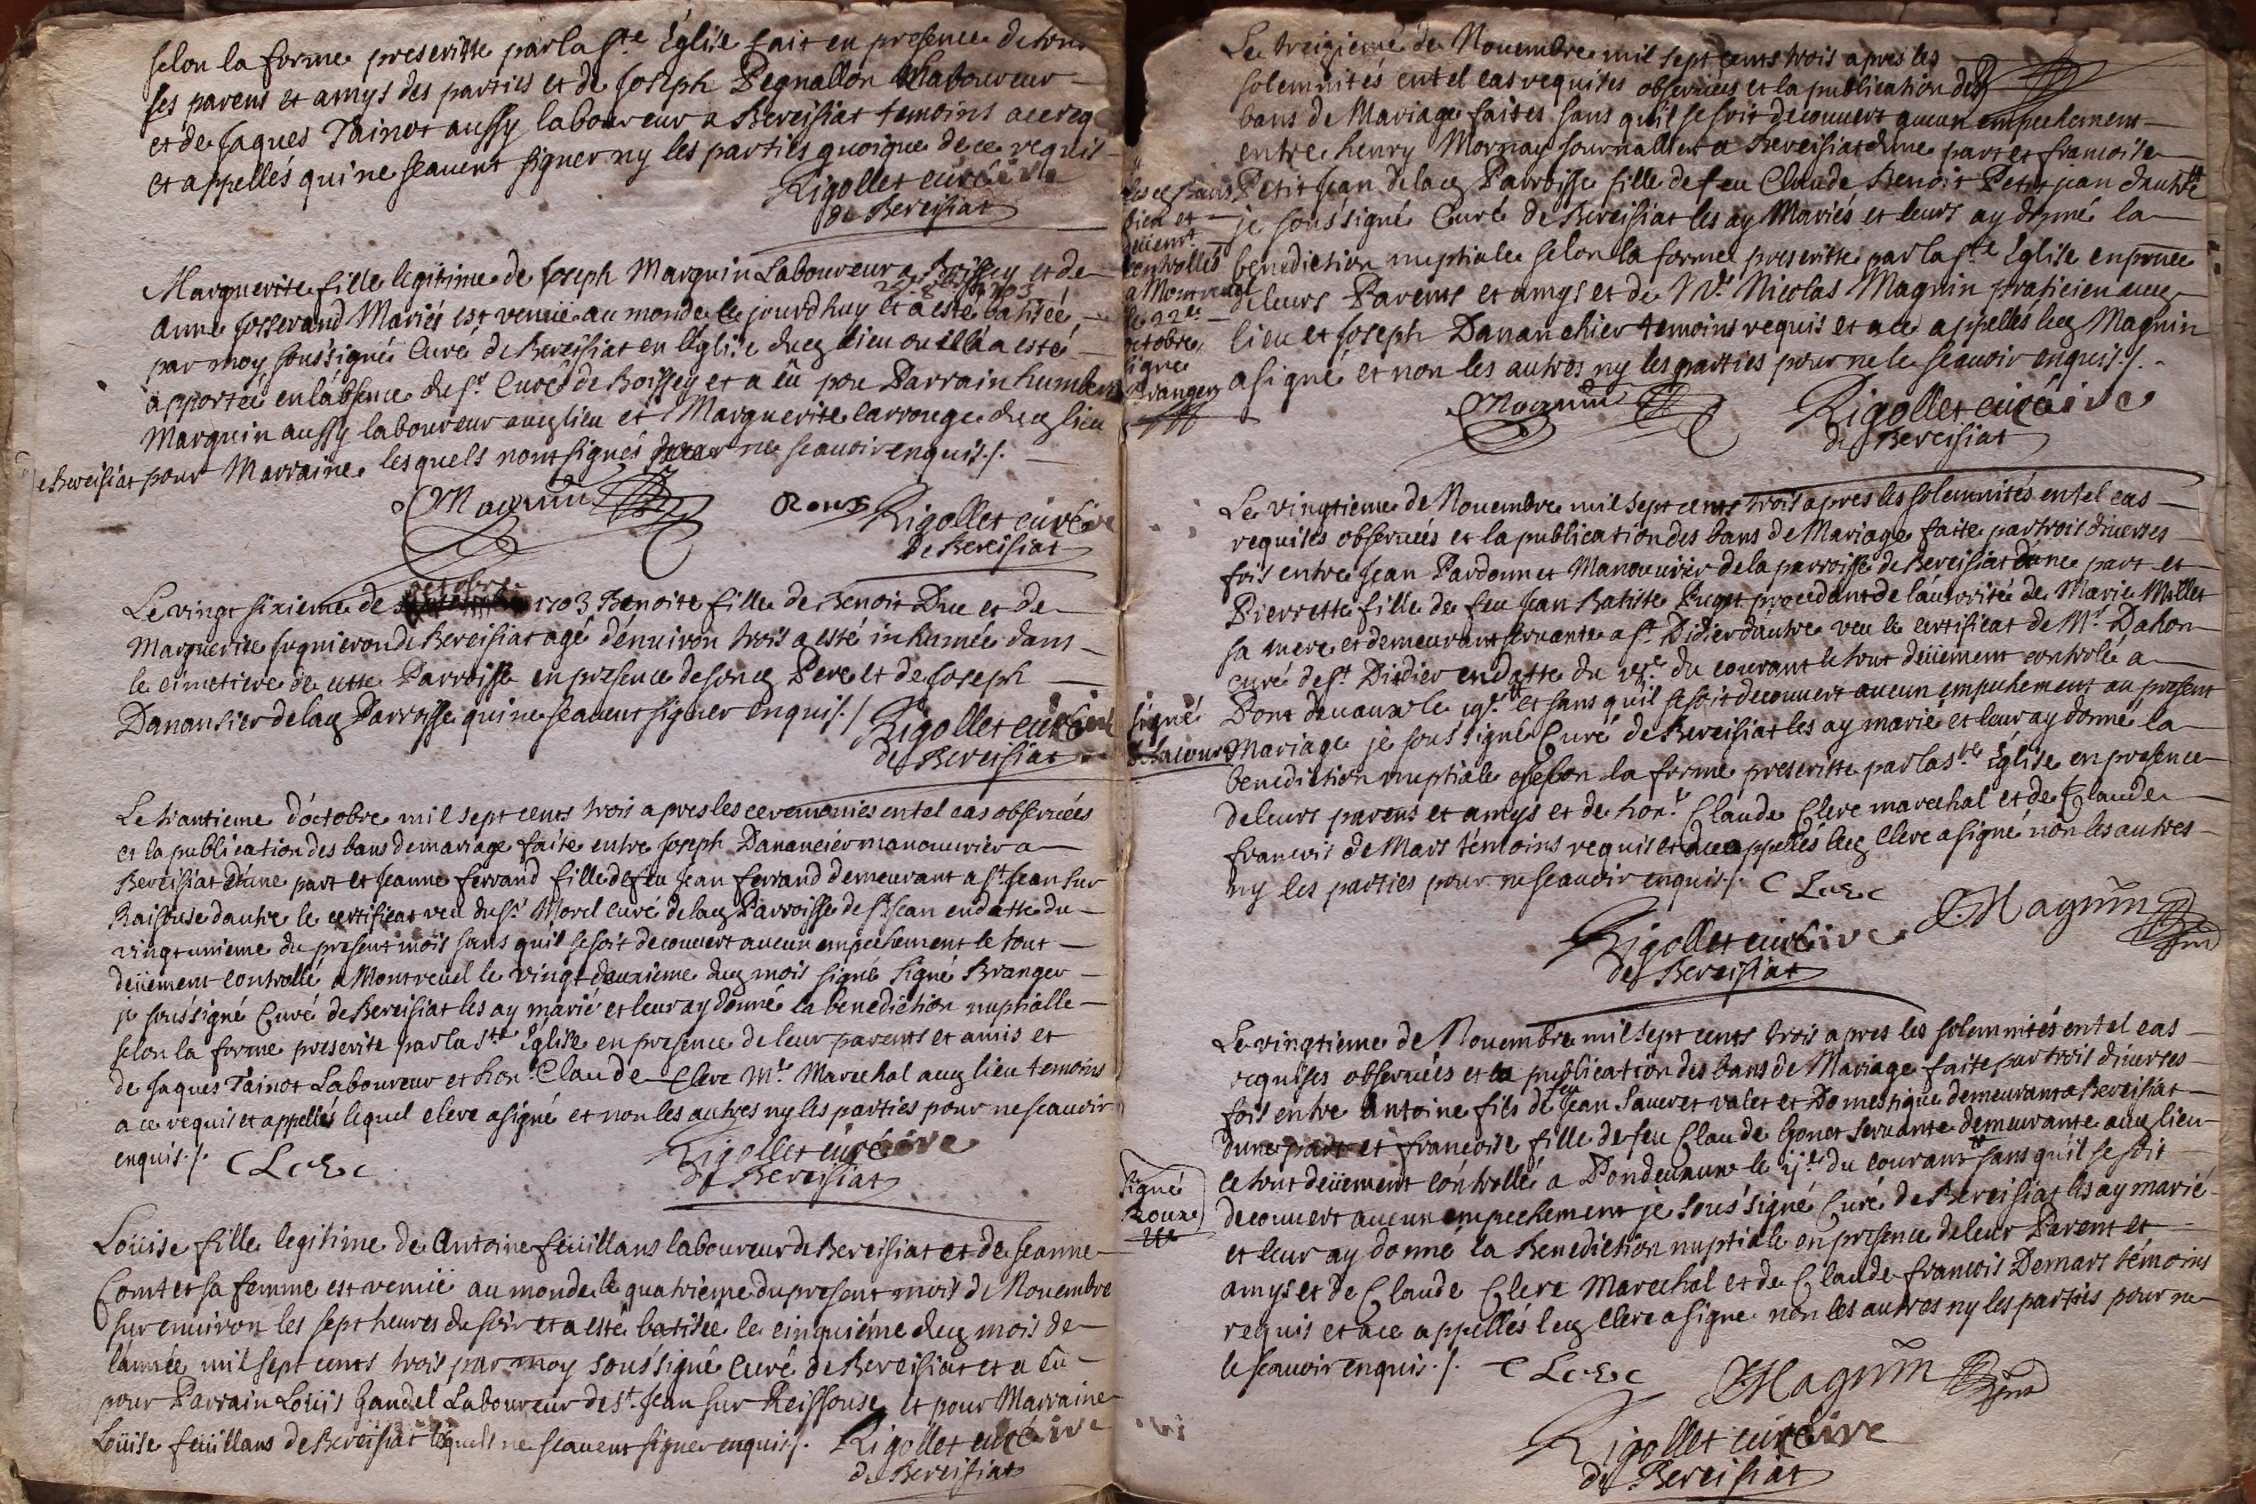 selon la forme prescritte par la Ste Église fait en presence de tous
ses parens et amys des parties et de Joseph Pegnallon laboureur
et de Jaques Tainot aussy laboureur a Bereisiat temoins a ce req
et appellés qui ne scauent signer ny les parties quoique de ce requis
Rigollet curé
de Bereisiat
Marguerite fille legitime de Joseph Marguin Laboureur a Boissey et de
Anne Josserand Mariés est venuë au monde le jourdhuy et a esté batisée
par moy soussigné Curé de Bereisiat en l'Église ducq lieu ou ellé a esté
apportée en l'absence du Sr Curé de Boissey et a eû pou Parrain humbert
Marguin aussy laboureur aucq lieu et Marguerite Carronge ducq lieu
e Bereisiat pour Marraine lesquels nont signés pour ne scauoir enquis ./.
Magnin Roux Rigollet curé
de Bereisiat
Le vingt sixieme de octobre 1703 Benoite fille de Benoit Duc et de
Marguerite Juguieron de Bereisiat agé d'enuiron trois a esté inhumée dans
le cimetiere de cette Parroisse en presence de soncq Pere et de Joseph
Danansier de lacq Parroisse qui ne scauent signer enquis ./.
Rigollet curé
de Bereisiat
Le trantieme d'octobre mil sept cents trois apres les ceremonies en tel cas obseruées
et la publication des bans de mariage faite entre Joseph Danancier manouurier a
Bereisiat d'une part et Jeanne ferrand fille de feu Jean ferrand demeurant a St Jean sur
Raisouse dautre le certificat veu du Sr Morel curé de lacq Parroisse de St Jean en datte du
vingt unieme du present mois sans qu'il se soit decouuert aucun empechement le tout
deüement controllé a Montreuel le vingt deuxieme ducq mois signé Signé Branger
je soussigné Curé de Bereisiat les ay marié et leur ay donné la benediction nuptialle
selon la forme prescrite par la Ste Église en presence de leur parents et amis et
de Jaques Tainot Laboureur et hon. Claude Clerc Me Marechal aucq lieu temoins
a ce requis et appellés lequel clerc a signé et non les autres ny les parties pour ne scauoir
enquis ./. C Lerc
Rigollet curé
de Bereisiat
Loüise fille legitime de Antoine feüillans laboureur de Bereisiat et de Jeanne
Comtet sa femme est venuë au monde le quatrieme du present mois de Nouembre
sur enuiron les sept heures du soir et a esté batisée le cinquiéme ducq mois de
l'année mil sept cents trois par moy soussigné Curé de Bereisiat et a eû
pour Parrain Loüis Gandel Laboureur de St Jean sur Reissouse et pour Marraine
Loüise feüillans de Bereisiat lesquels ne scauent signer enquis ./. Rigollet curé
de Bereisiat
Le treizieme de Nouembre mil sept cents trois apres les
solemnités en tel cas requises obseruées et la publication des
bans de Mariage faites sans qu'il se soit decouuert aucun empechement
entre henry Mornay Journallier a Bereisiat d'une part et francoise
Petit Jean de lacq Parroisse fille de feu Claude Benoit Petit jean d'autre
je soussigné Curé de Bereisiat les ay Mariés et leurs ay donné la
benediction nuptiale selon la forme prescritte par la Ste Église en pnce
de leurs Parents et amys et de Mr Nicolas Magnin praticien aucq
lieu et Joseph Dananchier temoins requis et a ce appellés lecq Magnin
a signé et non les autres ny les parties pour ne le scauoir enquis ./.
bien et
deüemt
controllés
a Montreuel
le 22e
octobre
signé
Branger
Magnin Rigollet curé
de Bereisiat
Le vingtieme de Nouembre mil sept cents trois apres les solemnités en tel cas
requises obseruées et la publication des bans de Mariage faite par trois diuerses
fois entre Jean Pardonnet Manouurier de la parroisse de Bereisiat d'une part et
Pierrette fille de feu Jean Batiste Puget procedant de l'autorité de Marie Millet
sa mere et demeurant seruante a St Didier d'autre veu le certificat de Mr Dahon
curé de St Didier en datte du du courant le tout deüement controlé a
Pont deuaux le 19e et sans qu'il se soit decouuert aucun empechement au present
Mariage je soussigné Curé de Bereisiat les ay marié et leur ay donné la
benediction nuptiale selon la forme prescritte par la Ste Église en presence
de leurs parens et amys et de hon. Claude Clerc marechal et de Claude
francois de Mars témoins requis et a ce appellés lecq Clerc a signé non les autres
ny les parties pour ne scauoir enquis ./. C Lerc
signé
Magnin
Rigollet curé
de Bereisiat
Le vingtieme de Nouembre mil sept cents trois apres les solemnités en tel cas
requises obseruées et la publication des bans de Mariage faite par trois diuerses
fois entre Antoine fils de feu Jean Sauuet valet et Domestique demeurant a Bereisiat
d'une part et francoise fille de feu Claude Gonet seruante demeurante aucq lieu
le tout deüement controllé a Pondeuaux le du courant sans qu'il se soit
decouuert aucun empechement je soussigné Curé de Bereisiat les ay marié
et leur ay donné la Benediction nuptiale en presence de leur Parent et
amys et de Claude Clerc Marechal et de Claude francois Demars témoins
requis et a ce appellés lecq Clerc a signé non les autres ny les parties pour ne
le scauoir enquis ./. C Lerc
Signé
Roux
Magnin
Rigollet curé
de Bereisiat